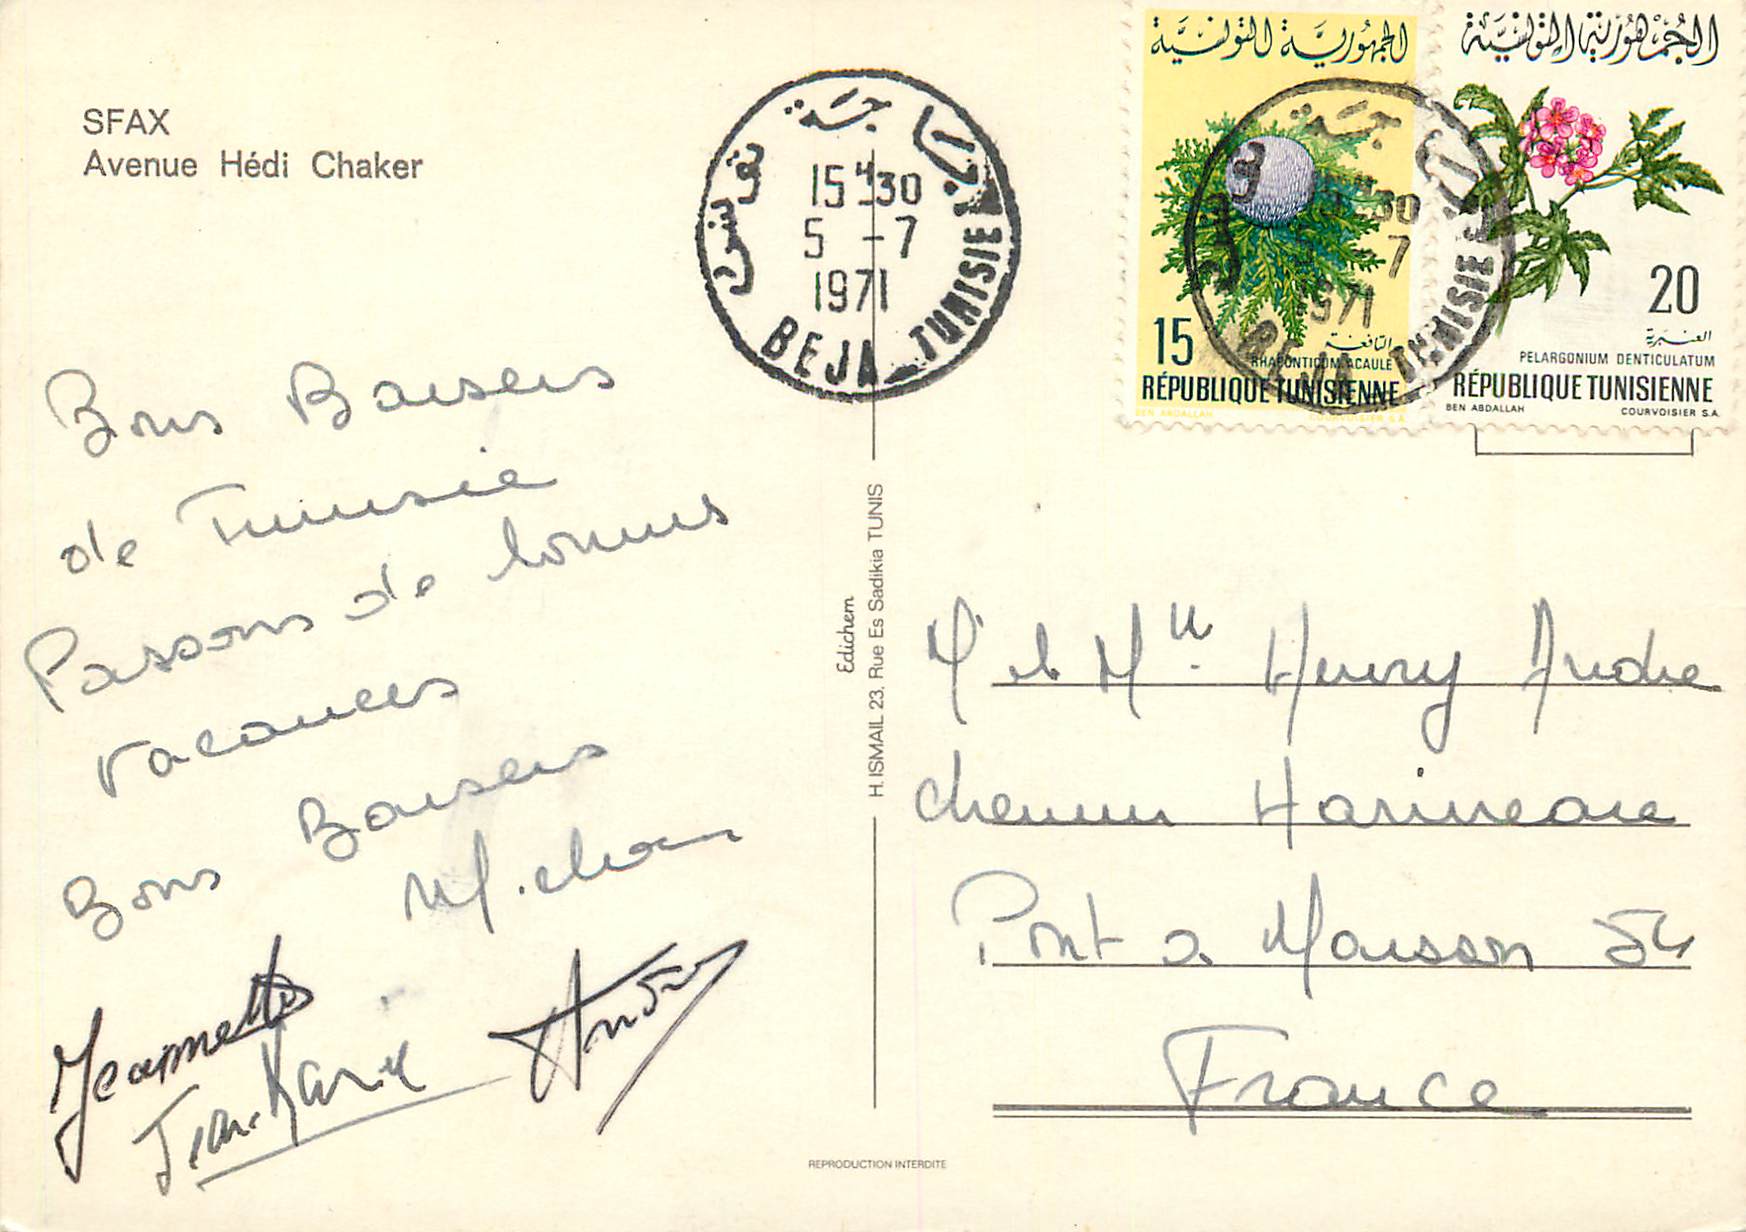 SFAX
Avenue Hédi Chaker
Bons Baisers
de Tunisie
Passons de bonnes
vacances
Bons Baisers
Jeannette
Jean-Marie
André
15 H 30
5 - 7
1971
BEJA TUNISIE
الجمهورية التونسية
15
RHAPONTICUM ACAULE
RÉPUBLIQUE TUNISIENNE
BEN ABDALLAH COURVOISIER S.A.
الجمهورية التونسية
20
PELARGONIUM DENTICULATUM
RÉPUBLIQUE TUNISIENNE
BEN ABDALLAH COURVOISIER S.A.
30
7
1971
BEJA TUNISIE
Edichem
H. ISMAIL 23, Rue Es Sadikia TUNIS
Mr et Mll Henry Andre
chemin
Pont a Mousson 54
France
REPRODUCTION INTERDITE